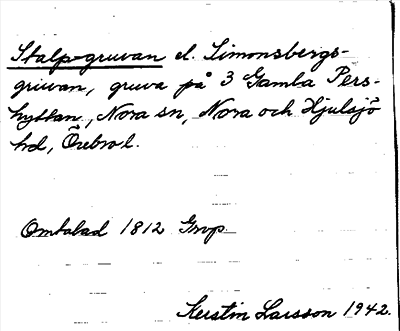 Stalp-gruvan el. Simonsbergs-
gruvan, gruva på 3 Gamla Pers-
hyttan, Nora sn, Nora och Hjulsjö
hd, Örebro l.
Omtalad 1812 Grvp.
Kerstin Larsson 1942.